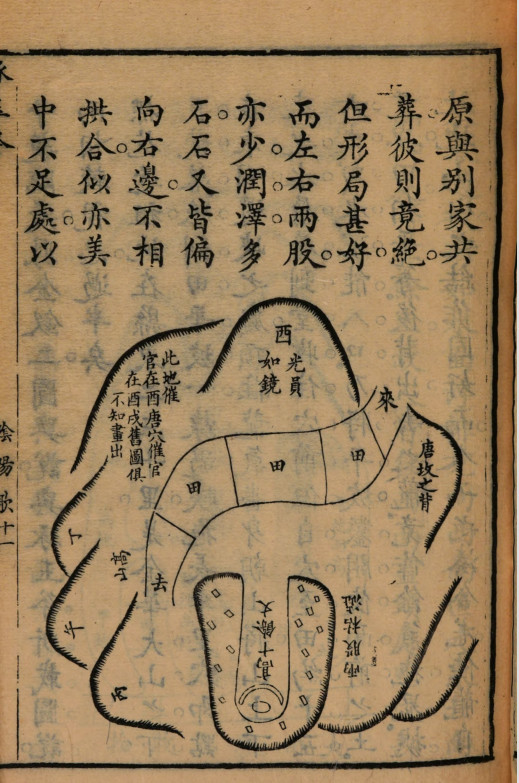 原與別家共
葬彼則竟絕
但形局甚好
而左右兩股
亦少潤澤多
石石又皆偏
向右邊不相
拱合似亦美
中不足處以
酉
光員
如鏡
此地催
官在酉唐穴催官
在酉戌舊圖俱
不知畫出
來
田
田
田
去
唐坟之背
丁
午
丙
高十餘丈
兩股粘滋
陰陽歌十一